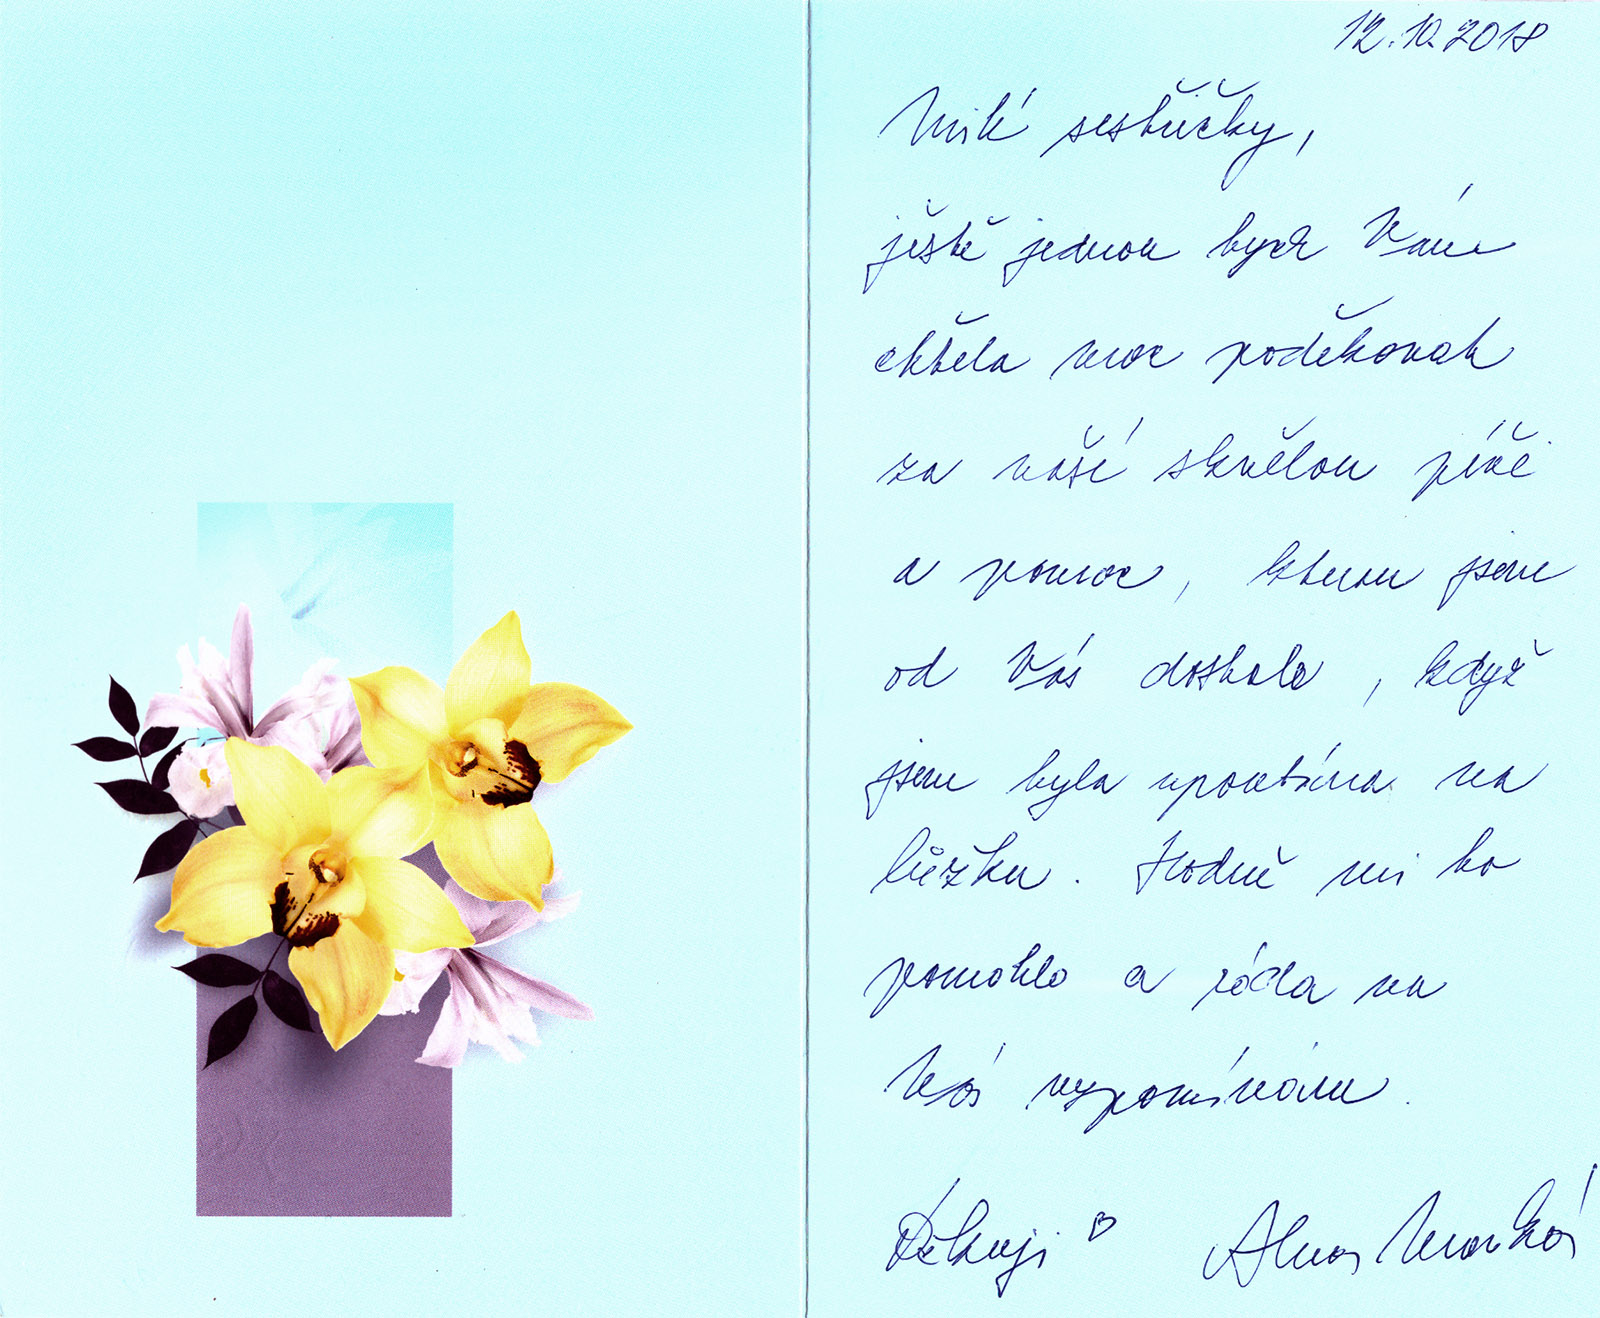 12.10.2018
Milé sestřičky,
ještě jednou bych Vám
chtěla moc poděkovat
za vaší skvělou péči
a pomoc, kterou jsem
od Vás dostala, když
jsem byla upoutána na
lůžku. Hodně mi to
pomohlo a ráda na
Vás vzpomínám.
Děkuji